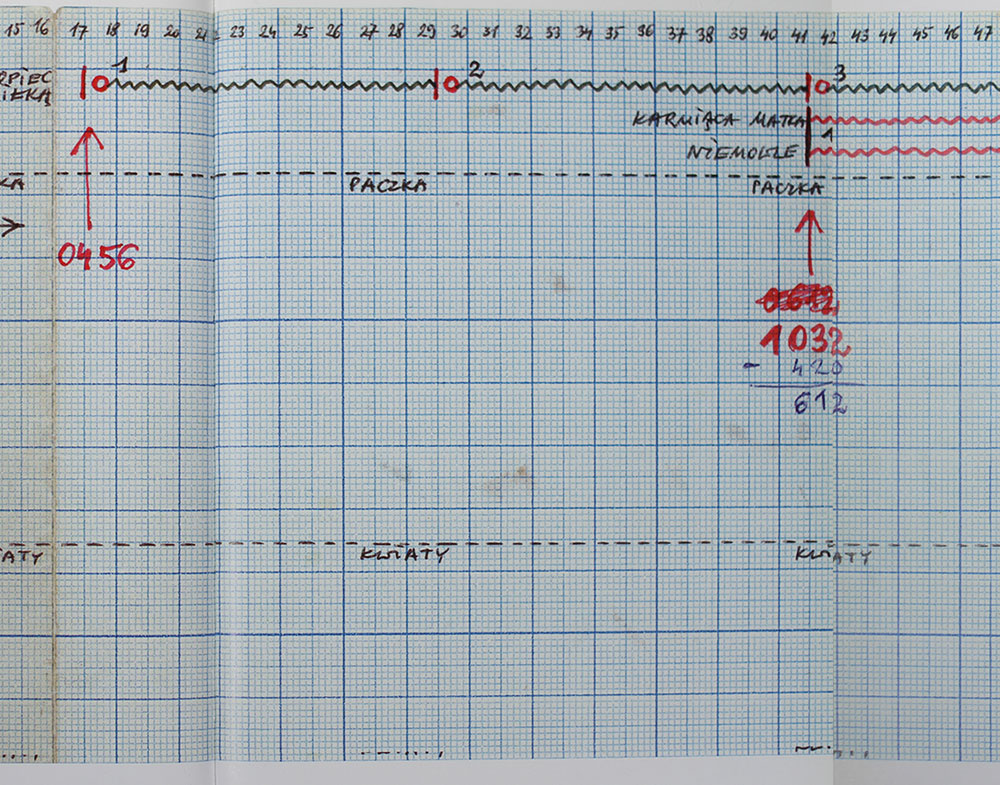 15 16 17 18 19 20 21 23 24 25 26 27 28 29 30 31 32 33 34 35 36 37 38 39 40 41 42 43 44 45 46 47
1 2 3
KARMIĄCA MATKA
NIEMOWLĘ 1
PACZKA PACZKA
0456
1032
- 420
612
KWIATY KWIATY